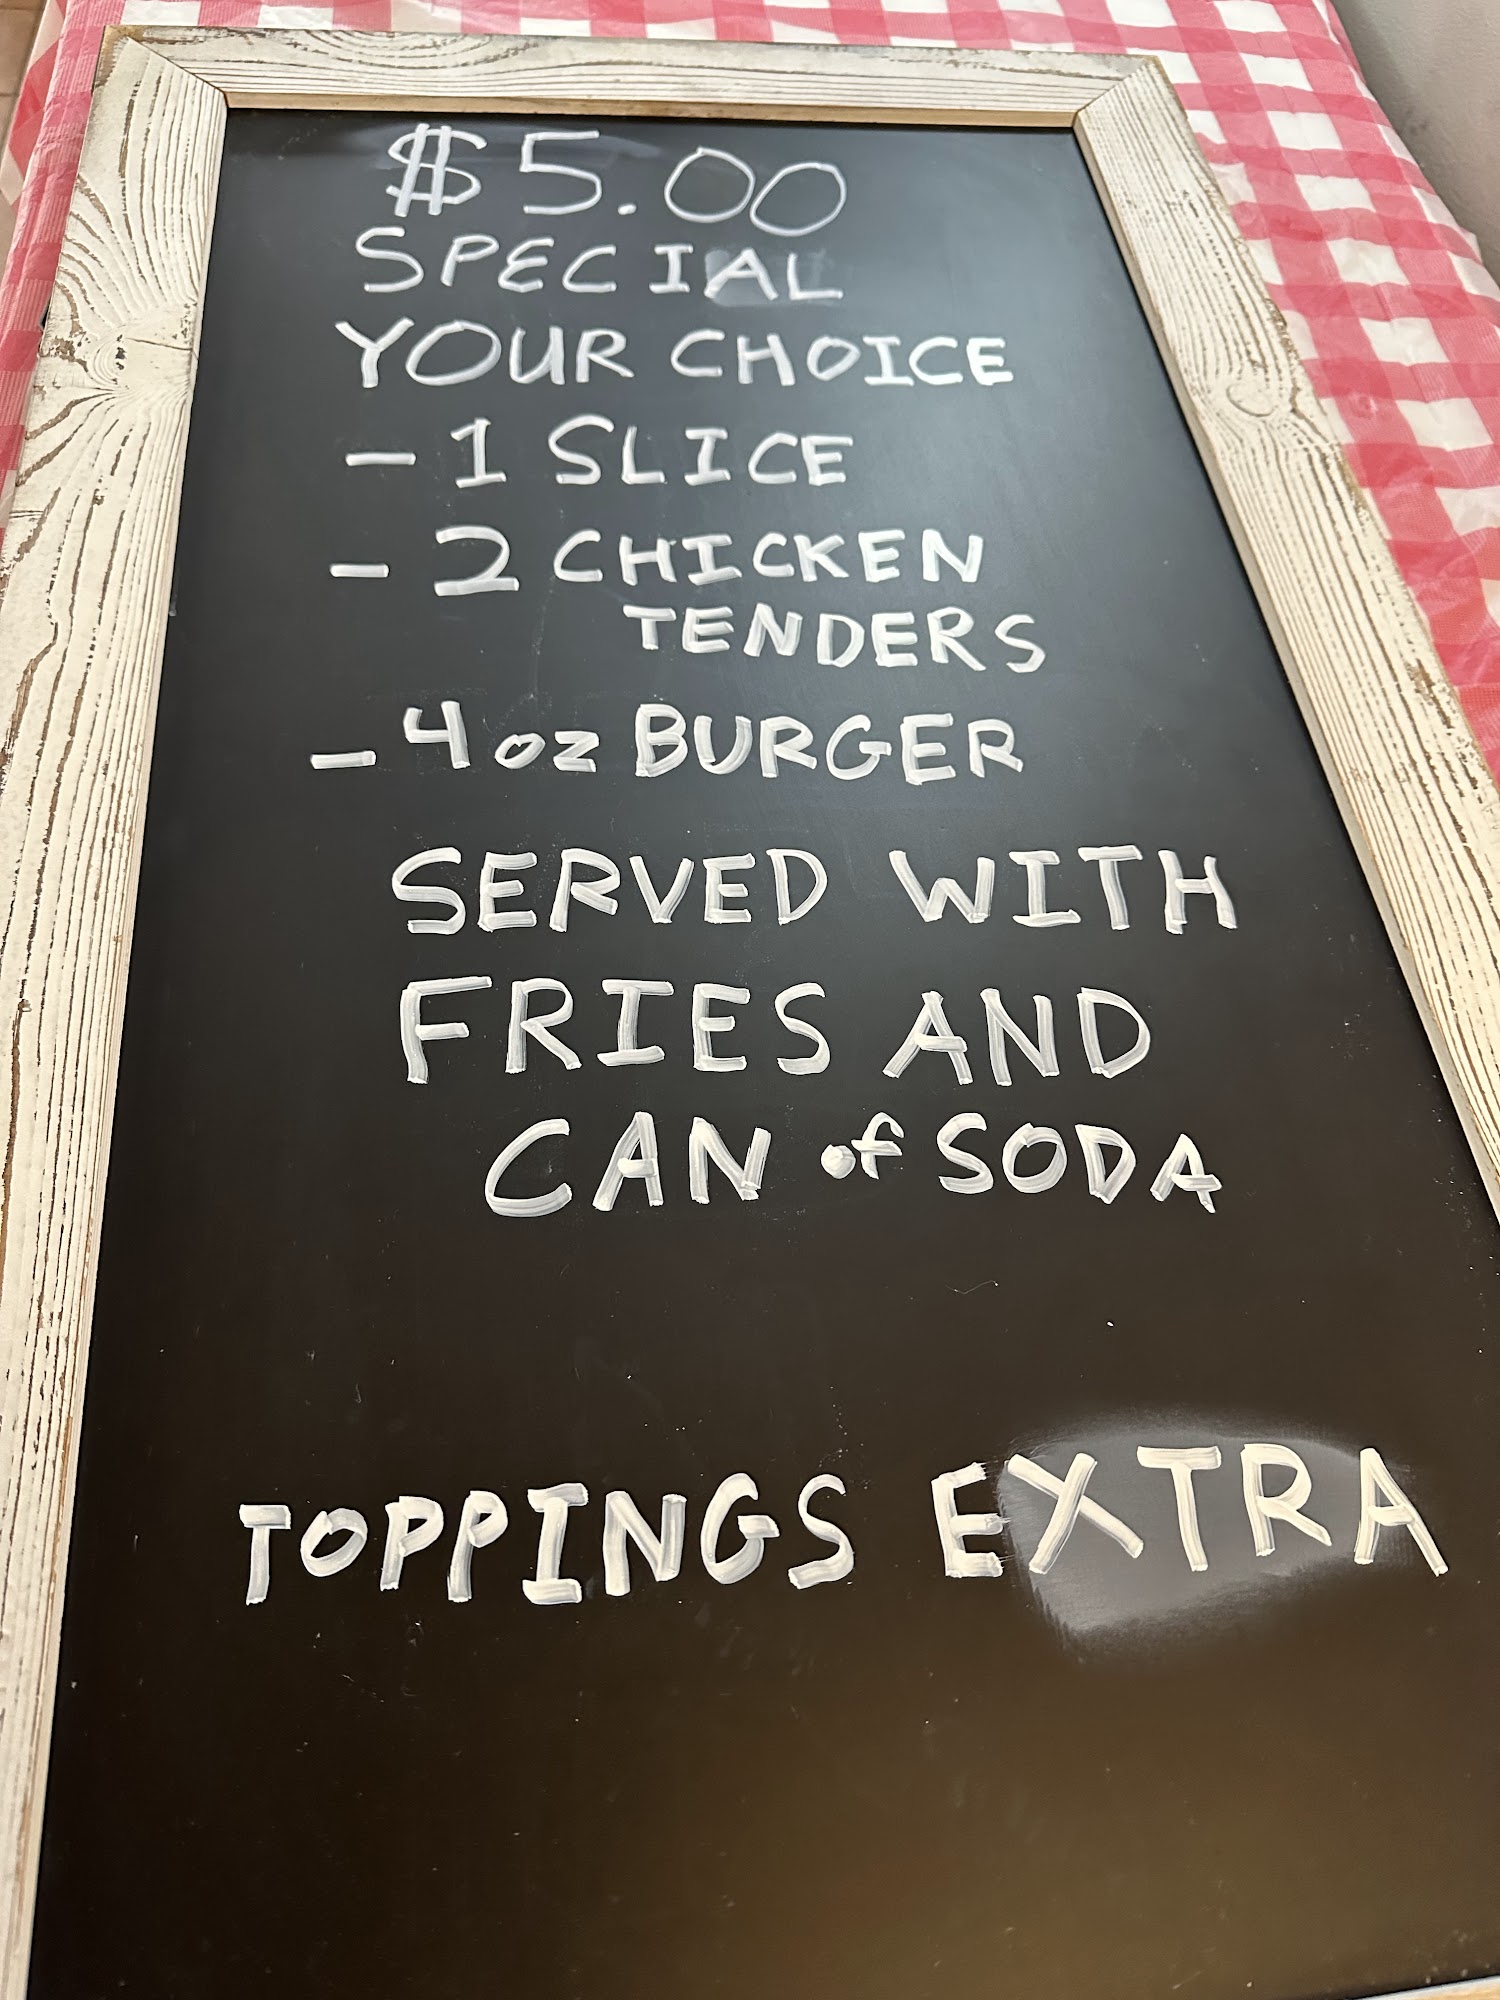 $5.00
SPECIAL
YOUR CHOICE
- 1 SLICE
- 2 CHICKEN
TENDERS
- 4 oz BURGER
SERVED WITH
FRIES AND
CAN of SODA
TOPPINGS EXTRA